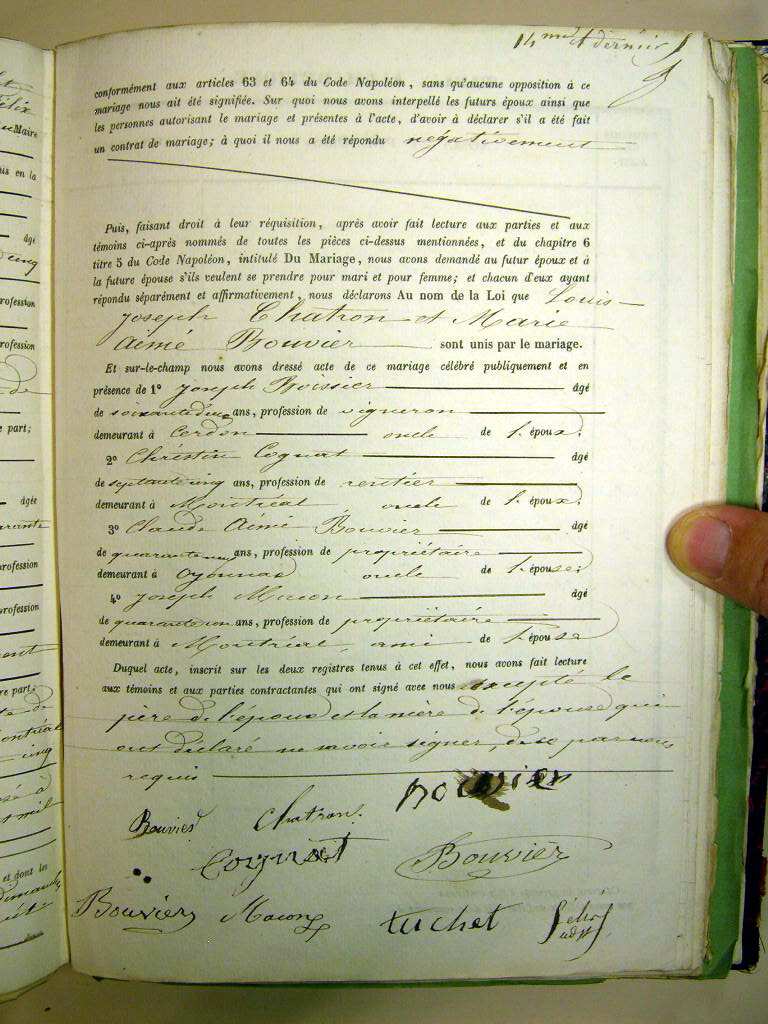 14me et dernier
conformément aux articles 63 et 64 du Code Napoléon, sans qu'aucune opposition à ce
mariage nous ait été signifiée. Sur quoi nous avons interpellé les futurs époux ainsi que
les personnes autorisant le mariage et présentes à l'acte, d'avoir à déclarer s'il a été fait
un contrat de mariage; à quoi il nous a été répondu négativement
Puis, faisant droit à leur réquisition, après avoir fait lecture aux parties et aux
témoins ci-après nommés de toutes les pièces ci-dessus mentionnées, et du chapitre 6
titre 5 du Code Napoléon, intitulé Du Mariage, nous avons demandé au futur époux et à
la future épouse s'ils veulent se prendre pour mari et pour femme; et chacun d'eux ayant
répondu séparément et affirmativement, nous déclarons Au nom de la Loi que Louis
joseph Chatron et Marie
Aimé Bouvier sont unis par le mariage.
Et sur-le-champ nous avons dressé acte de ce mariage célébré publiquement et en
présence de 1º joseph Boissier âgé
de soixante deux ans, profession de vigneron
demeurant à Cerdon oncle de l. époux;
2º Christin Cognat âgé
de septante cinq ans, profession de rentier
demeurant à Montréal oncle de l. époux;
3º Claude Aimé Bouvier âgé
de quarante ans, profession de propriétaire
demeurant à Oyonnax oncle de l. épouse;
4º joseph Macon âgé
de quarante un ans, profession de propriétaire
demeurant à Montréal, ami de l. épouse
Duquel acte, inscrit sur les deux registres tenus à cet effet, nous avons fait lecture
aux témoins et aux parties contractantes qui ont signé avec nous excepté le
père de l'époux et la mère de l'épouse qui
ont déclaré ne savoir signer, de ce par nous
requis
Bouvier Chatron. Bouvier
Cognat Bouvier
Bouvier Macon tuchet